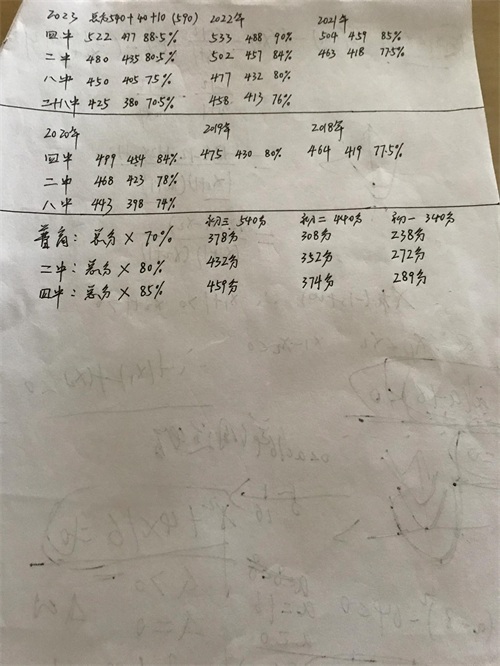 2023 总分540+40+10 (590) 2022年 2021年
四中 522 477 88.5% 533 488 90% 504 459 85%
二中 480 435 80.5% 502 457 84% 463 418 77.5%
八中 450 405 75% 477 432 80%
二十八中 425 380 70.5% 458 413 76%
2020年 2019年 2018年
四中 499 454 84% 475 430 80% 464 419 77.5%
二中 468 423 78%
八中 443 398 74%
初三 540分 初二 440分 初一 340分
普高: 总分 × 70% 378分 308分 238分
二中: 总分 × 80% 432分 352分 272分
四中: 总分 × 85% 459分 374分 289分